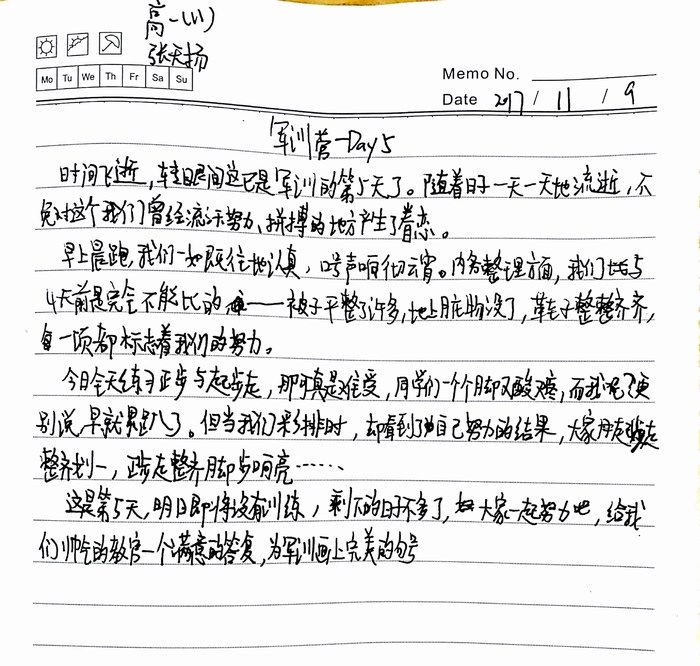 高一(11)
张天扬
Mo Tu We Th Fr Sa Su
Memo No.
Date 2017 / 11 / 9
军训营一Day5
时间飞逝，转眼间这已是军训的第5天了。随着日子一天一天地流逝，不
免对这个我们曾经流汗努力、拼搏的地方产生了眷恋。
早上晨跑，我们一如既往地认真，口号声响彻云霄。内务整理方面，我们也与
4天前是完全不能比的——被子平整了许多，地上脏物没了，鞋子整整齐齐，
每一项都标志着我们的努力。
今日全天练习正步与起步走，那可真是难受，同学们一个个脚又酸疼，而我呢？更
别说早就累趴了。但当我们彩排时，却看到了自己努力的结果，大家齐步走
整齐划一，正步走整齐脚步响亮……
这是第5天，明日即将没有训练，剩下的日子不多了，大家一起努力吧，给我
们帅气的教官一个满意的答复，为军训画上完美的句号